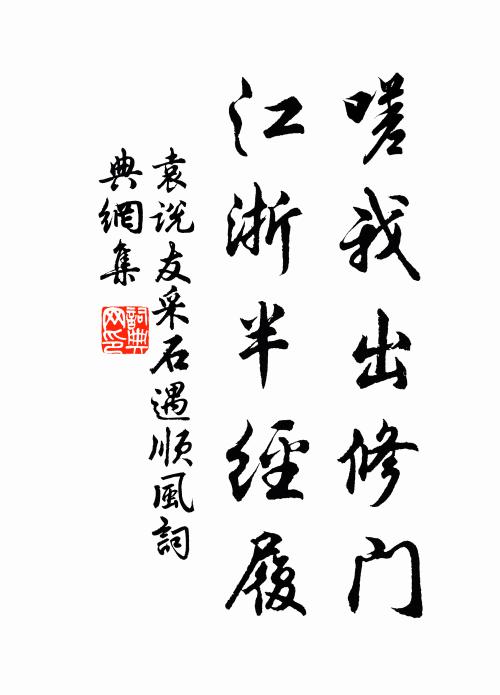 嗟我出修门
江浙半經履
袁说友采石遇顺風詞
典網集
詞典网印